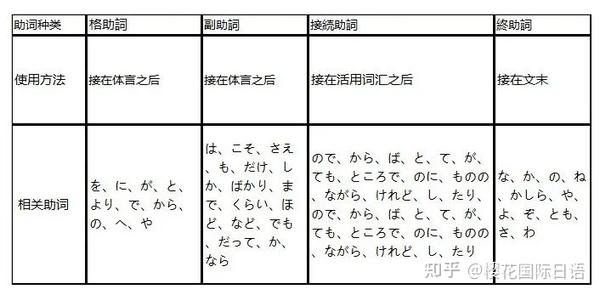 助词种类
格助詞
副助詞
接続助詞
終助詞
使用方法
接在体言之后
接在体言之后
接在活用词汇之后
接在文末
相关助词
を、に、が、と、
より、で、から、
の、へ、や
は、こそ、さえ
、も、だけ、し
か、ばかり、ま
で、くらい、ほ
ど、など、でも
、だって、か、
なら
ので、から、ば、と、て、が、
ても、ところで、のに、ものの
、ながら、けれど、し、たり、
ので、から、ば、と、て、が、
ても、ところで、のに、ものの
、ながら、けれど、し、たり
な、か、の、ね
、かしら、や、
よ、ぞ、とも、
さ、わ
知乎 @樱花国际日语